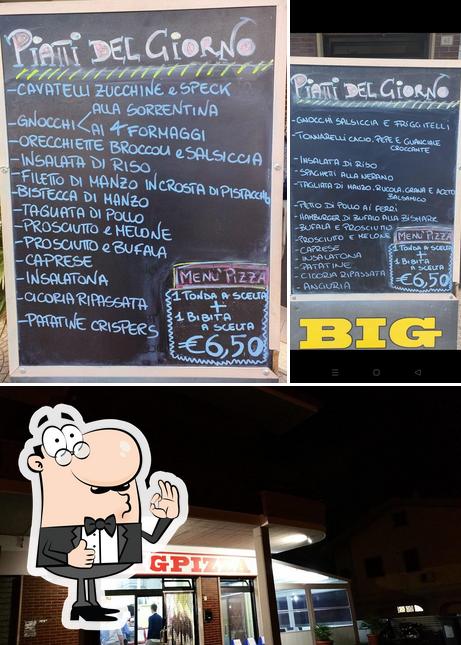 PIATTI DEL GIORNO
-CAVATELLI ZUCCHINE e SPECK
-GNOCCHI < ALLA SORRENTINA
AI 4 FORMAGGI
-ORECCHIETTE BROCCOLI e SALSICCIA
-INSALATA DI RISO
-FILETTO DI MANZO IN CROSTA DI PISTACCHIO
-BISTECCA DI MANZO
-TAGLIATA DI POLLO
-PROSCIUTTO e MELONE
-PROSCIUTTO e BUFALA
-CAPRESE
-INSALATONA
-CICORIA RIPASSATA
-PATATINE CRISPERS
MENU' PIZZA
1 TONDA A SCELTA
+
1 BIBITA
A SCELTA
€6,50
PIATTI DEL GIORNO
-GNOCCHI SALSICCIA E FRIGGITELLI
-TONNARELLI CACIO, PEPE E GUANCIALE
CROCCANTE
-INSALATA DI RISO
-SPAGHETTI ALLA NERANO
-TAGLIATA DI MANZO, RUCOLA, GRANA E ACETO
BALSAMICO
-PETTO DI POLLO AI FERRI
-HAMBURGER DI BUFALO ALLA BISMARK
-BUFALA E PROSCIUTTO
-PROSCIUTTO E MELONE
-CAPRESE
-INSALATONA
-PATATINE
-CICORIA RIPASSATA
-ANGURIA
MENU' PIZZA
1 TONDA A SCELTA
+
1 BIBITA
A SCELTA
€6,50
BIG
GPIZZA